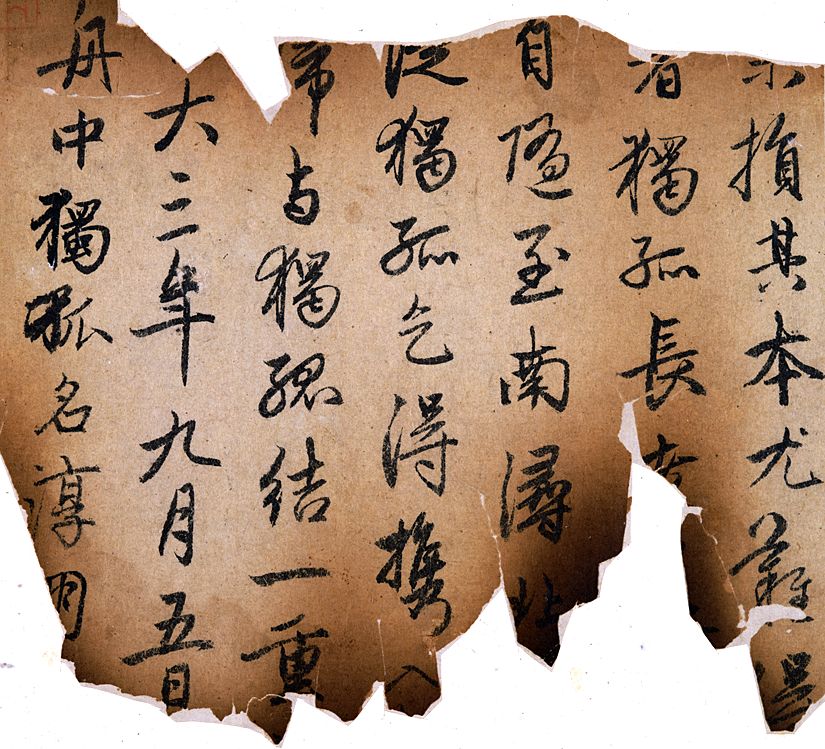 損其本尤難得
獨孤長
自隨至南潯北
從獨孤乞得攜入
帝与獨孤結一重
大三年九月五日
舟中獨孤名淳朋